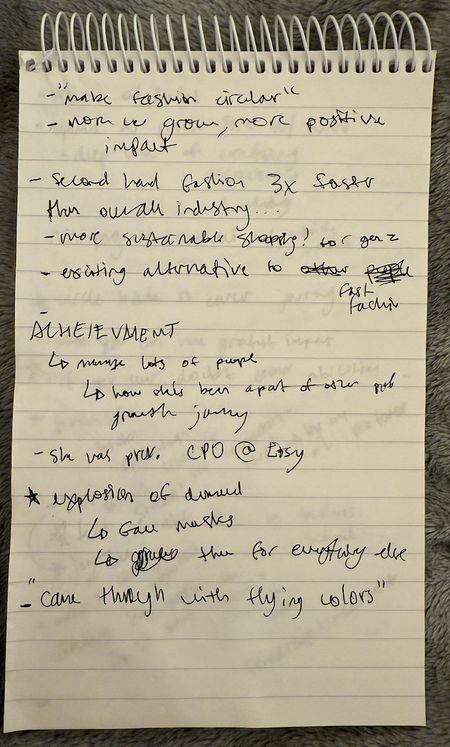 - "make fashion circular"
- more we grow, more positive
impact
- second hand fashion 3x faster
than overall industry...
- more sustainable shopping! for gen z
- existing alternative to
fast
fashion
-
ACHEIEVMENT
↳ manage lots of people
↳ how she's been a part of other
growth journey
- she was prev. CPO @ Etsy
★ explosion of demand
↳ face masks
↳ then for everything else
- "came through with flying colors"